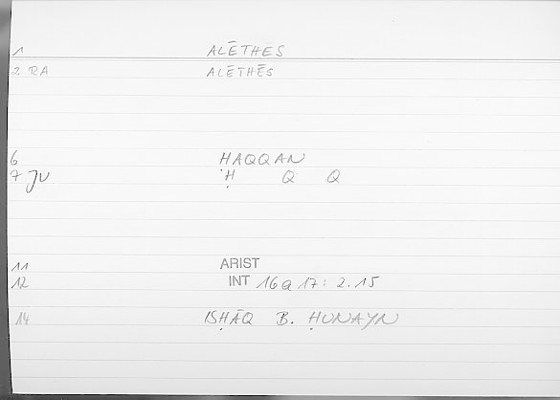 1 ALĒTHES
2 RA ALĒTHĒS
6 HAQQAN
7 JU Ḥ Q Q
11 ARIST
12 INT 16a17: 2.15
14 ISḤĀQ B. ḤUNAYN